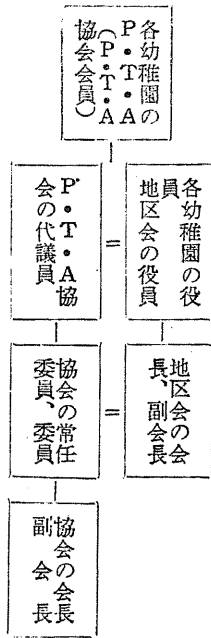 各幼稚園の
P・T・A
(P・T・A
協会会員)
各幼稚園の役
員
地区会の役員
=
P・T・A協
会の代議員
地区会の会
長、副会長
=
協会の常任
委員、委員
協会の会長
副会長